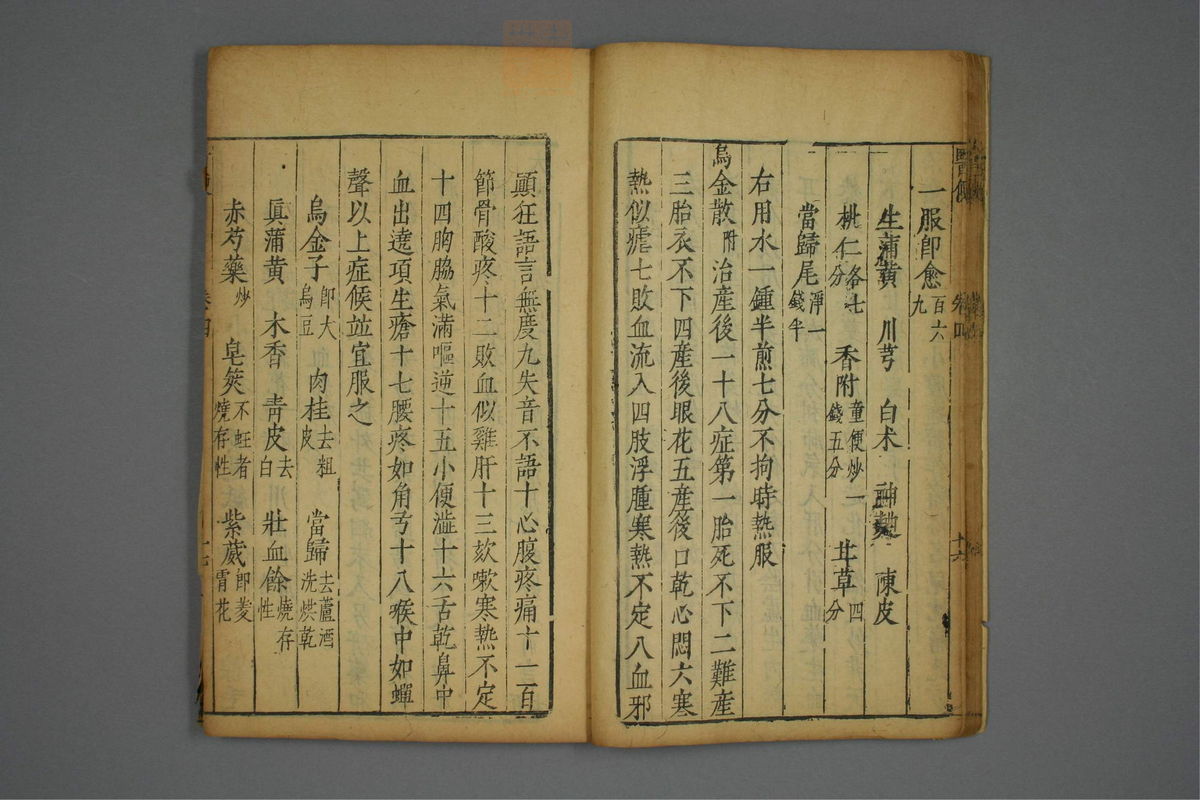 一服卽愈百六九
生蒲黃 川芎 白术 神麯 陳皮
桃仁各七分 香附童便炒一錢五分 甘草四分
當歸尾淨一錢半
右用水一鍾半煎七分不拘時熱服
烏金散附治產後一十八症第一胎死不下二難產
三胎衣不下四產後眼花五產後口乾心悶六寒
熱似瘧七敗血流入四肢浮腫寒熱不定八血邪
顚狂語言無度九失音不語十心腹疼痛十一百
節骨酸疼十二敗血似雞肝十三欬嗽寒熱不定
十四胸脇氣滿嘔逆十五小便澁十六舌乾鼻中
血出遶項生瘡十七腰疼如角弓十八喉中如蟬
聲以上症候竝宜服之
烏金子卽大烏豆 肉桂去粗皮 當歸去蘆酒洗烘乾
眞蒲黃 木香 靑皮去白 壯血餘燒存性
赤芍藥炒 皂莢不蛀者燒存性 紫葳卽菱霄花
卷四
十六